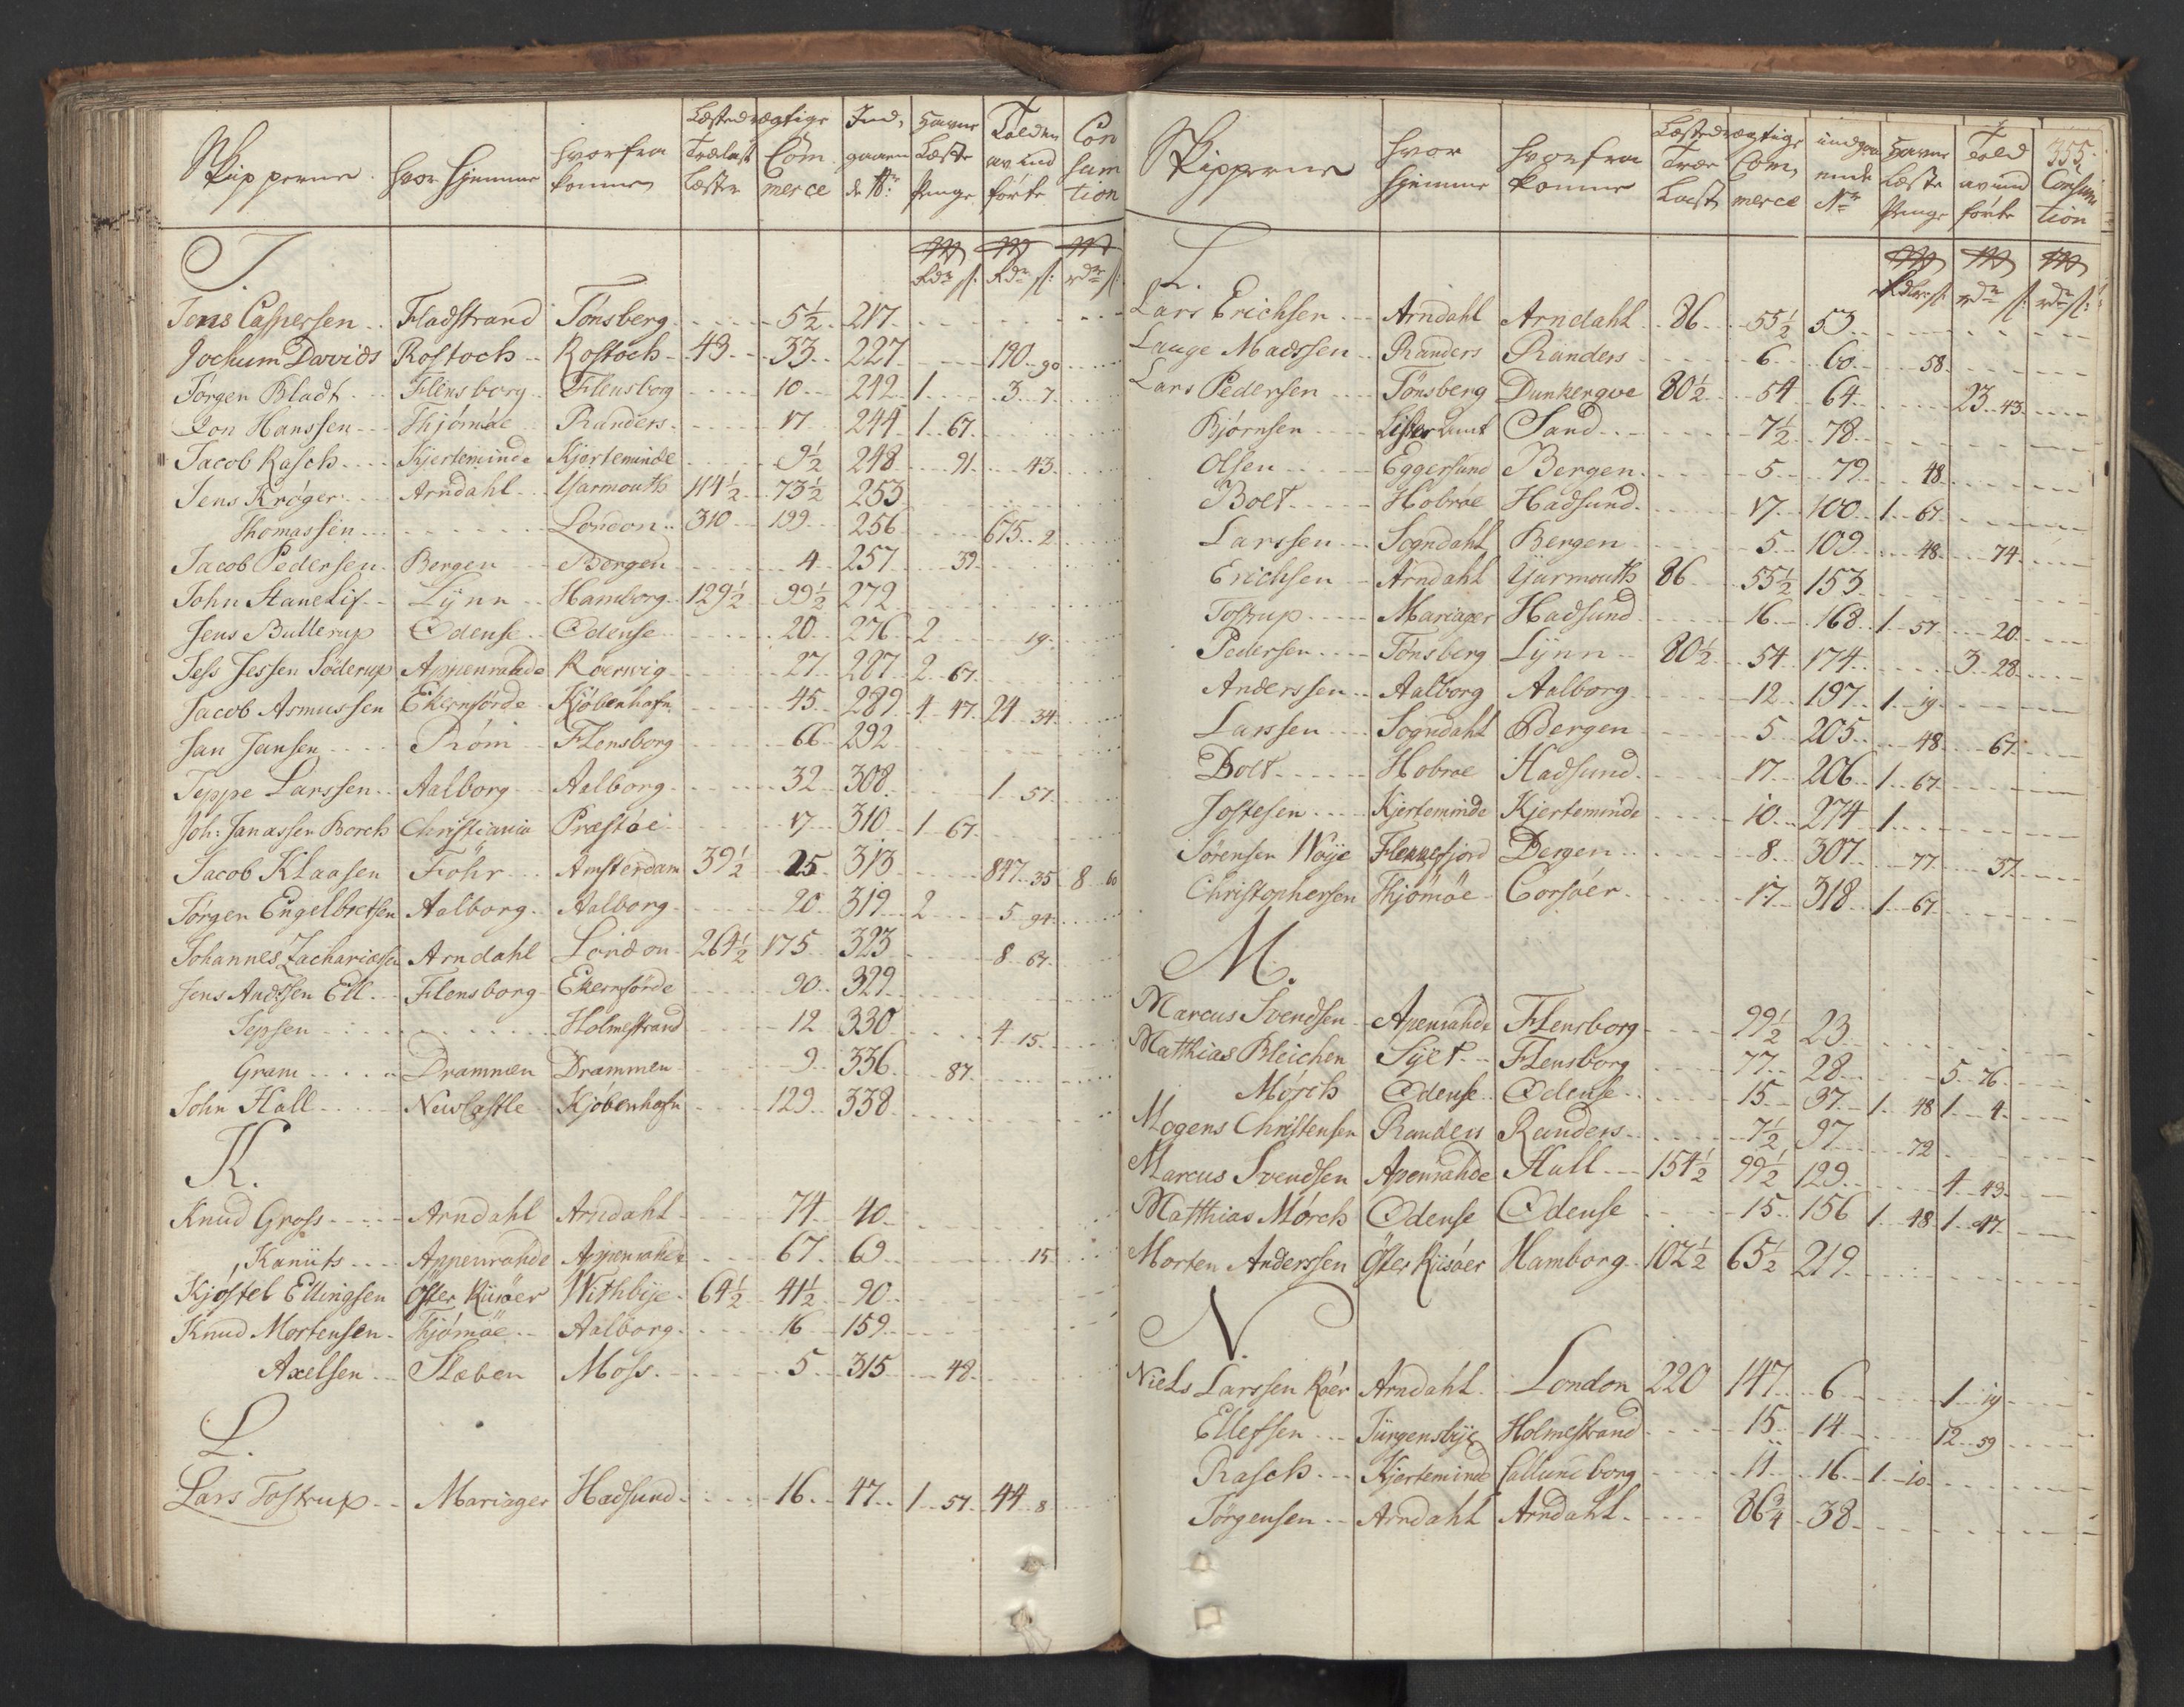 Skipperne. hvor hjemme hvorfra kommer Læstedrægtige Trælast Læster Com merce Ind, gaaen de No: Havne Læste Penge Tolden av ind førte Con sum tion
J.
Rdr s: Rdr s: rdr s:
Jens Caspersen Fladstrand Tønsberg 5½ 217
Jochum Davids Rostoch Rostoch 43 33 227 190 90
Jørgen Bladt Flensborg Flensborg 10 242 1 3 7
Jon Hanssen Thjømøe Randers 17 244 1 67
Jacob Rasch Kjerteminde Kjerteminde 9½ 248 91 43
Jens Krøger Arndahl Yarmouth 114½ 73½ 253
Thomassen London 310 199 256 675 2
Jacob Pedersen Bergen Bergen 4 257 39
John Stanelif Lynn Hamborg 129½ 99½ 272
Jens Bullerup Odense Odense 20 276 2 19
Jess Jessen Søderup Appenrahde Roerwig 27 287 2 67
Jacob Asmussen Ekernførde Kjøbenhafn 45 289 4 47 24 34
Jan Jansen Røm Flensborg 66 292
Jeppe Larssen Aalborg Aalborg 32 308 1 57
Joh: Janassen Borch Christiania Præstøe 17 310 1 67
Jacob Klaasen Föhr Amsterdam 39½ 25 313 847 35 8 60
Jørgen Engelbretsen Aalborg Aalborg 20 319 2 5 94
Johannes Zachariæsen Arndahl London 264½ 175 323 8 67
Jens Andssen Ell. Flensborg Ekernførde 90 329
Jepsen Holmestrand 12 330 4 15
Gram Drammen Drammen 9 336 87
John Hall NewCastle Kjøbenhafn 129 338
K.
Knud Gross Arndahl Arndahl 74 40
Kanüts Appenrahde Appenrahde 67 69 15
Kjøstel Ellingsen Øster Riisøer Withbye 64½ 41½ 90
Knud Mortensen Thjømøe Aalborg 16 159
Axelsen Staben Moss 5 315 48
L.
Lars Tostrup Mariager Hadsund 16 47 1 57 44 8
355.
Skipperne hvor hjemme hvorfra komme Læstedrægtige Træ Last Com, merce indgaa ende No Havne Læste Penge Told av ind førte Consum tion
L.
Lars Erichsen Arndahl Arndahl 86 55½ 53
Lauge Madssen Randers Randers 6 60 58
Lars Pedersen Tønsberg Dunkerqve 80½ 54 64 23 43
Bjørnsen Lister amt Sand 7½ 78
Olsen Eggersund Bergen 5 79 48
Bolt Hobroe Hadsund 17 100 1 67
Larssen Sogndahl Bergen 5 109 48 74
Erichsen Arndahl Yarmouth 86 55½ 153
Tostrup Mariager Hadsund 16 168 1 57 20
Pedersen Tønsberg Lynn 80½ 54 174 3 28
Anderssen Aalborg Aalborg 12 197 1 19
Larssen Sogndahl Bergen 5 205 48 67
Bolt Hobroe Hadsund 17 206 1 67
Jostesen Kjerteminde Kjerteminde 10 274 1
Sørensen Woye Flekkefjord Bergen 8 307 77 37
Christophersen Thjømøe Corsøer 17 318 1 67
M.
Marcus Svendsen Apenrahde Flensborg 99½ 23
Matthias Bleichen Sylt Flensborg 77 28 5 76
Mørch Odense Odense 15 37 1 48 1 4
Mogens Christensen Randers Randers 7½ 97 72
Marcus Svendsen Apenrahde Hull 154½ 99½ 129 4 43
Matthias Mørch Odense Odense 15 156 1 48 1 47
Morten Anderssen Øster Riisøer Hamborg 102½ 65½ 219
N.
Niels Larssen Røer Arndahl London 220 147 6 1 19
Ellefsen Jürgensbye Holmestrand 15 14 12 59
Rasch Kjerteminde Callundborg 11 16 1 10
Jørgensen Arndahl Arndahl 86¾ 38